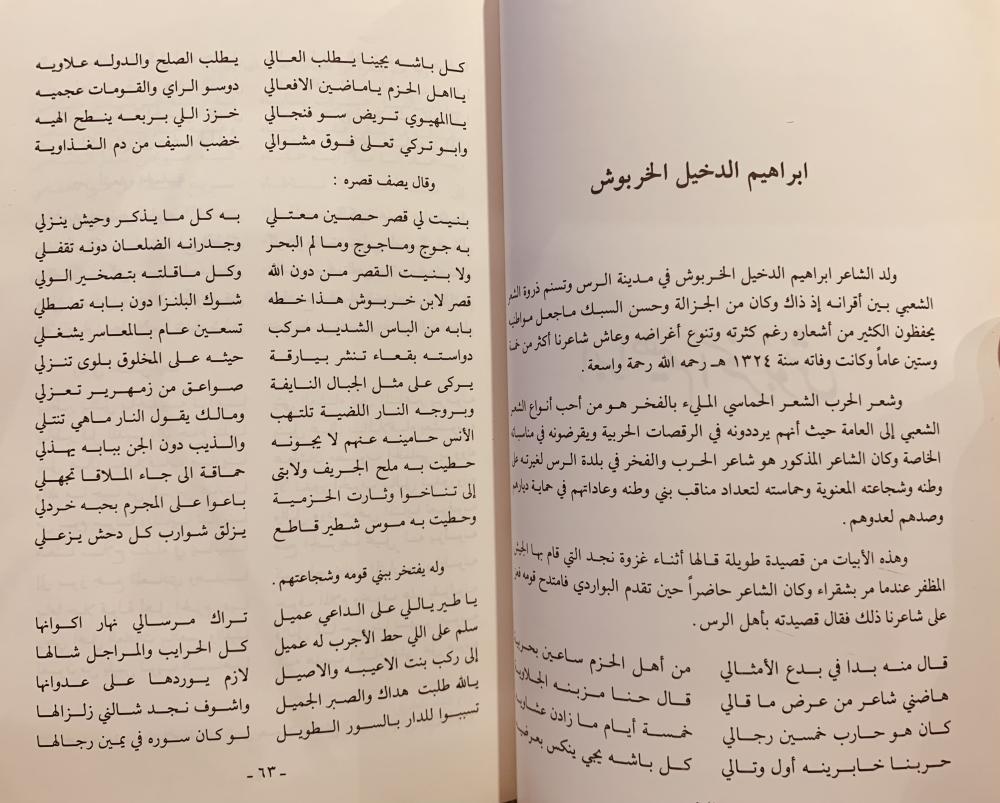 ابراهيم الدخيل الخربوش
ولد الشاعر ابراهيم الدخيل الخربوش في مدينة الرس وتسنم ذروة الشعر
الشعبي بين أقرانه إذ ذاك وكان من الجزالة وحسن السبك ماجعل
يحفظون الكثير من أشعاره رغم كثرته وتنوع أغراضه وعاش شاعرنا أكثر من خمسة
وستين عاماً وكانت وفاته سنة ١٣٢٤ هـ رحمه الله رحمة واسعة .
وشعر الحرب الشعر الحماسي المليء بالفخر هو من أحب أنواع الشعر
الشعبي إلى العامة حيث أنهم يرددونه في الرقصات الحربية ويقرضونه في مناسباتهم
الخاصة وكان الشاعر المذكور هو شاعر الحرب والفخر في بلدة الرس لغيرته على
وطنه وشجاعته المعنوية وحماسته لتعداد مناقب بني وطنه وعاداتهم في حماية ديارهم
وصدهم لعدوهم .
وهذه الأبيات من قصيدة طويلة قالها أثناء غزوة نجد التي قام بها الجيش
المظفر عندما مر بشقراء وكان الشاعر حاضراً حين تقدم البواردي فامتدح قومه
على شاعرنا ذلك فقال قصيدته بأهل الرس .
قال منه بدا في بدع الأمثالي من أهل الحزم ساعين
هاضني شاعر من عرض ما قالي قال حنا مزبنه
كان هو حارب خمسين رجالي خمسة أيام ما زادن
حربنا خابرينه أول وتالي كل باشه يجي ينكس
كل باشه يجينا يطلب العالي يطلب الصلح والدوله علاويه
يااهل الحزم ياماضين الافعالي دوسو الراي والقومات عجميه
ياالمهيوي تريض سو فنجالي خزز اللي بربعه ينطح الهيه
وابو تركي تعلى فوق مشوالي خضب السيف من دم الغذاوية
وقال يصف قصره :
بنيت لي قصر حصين معتلي به كل ما يذكر وحيش ينزلي
به جوج وماجوج وما لم البحر وجدرانه الضلعان دونه تقفلي
ولا بنيت القصر من دون الله وكل ماقلته بتصخير الولي
قصر لابن خربوش هذا خطه شوك البلنزا دون بابه تصطلي
بابه من الباس الشديد مركب تسعين عام بالمعاسر يشغلي
دواسته بقعاء تنشر بيارقة حيثه على المخلوق بلوى تنزلي
يركى على مثل الجبال النايفة صواعق من زمهرير تعزلي
وبروجه النار اللضية تلتهب ومالك يقول النار ماهي تنتلي
الأنس حامينه عنهم لا يجونه والذيب دون الجن ببابه يهذلي
حطيت به ملح الجريف ولابتى حماقة الى جاء الملاقا تجهلي
إلى تناخوا وثارت الحزمية باعوا على المجرم بحبه خردلي
وحطيت به موس شطير قاطع يزلق شوارب كل دحش يزعلي
وله يفتخر ببني قومه وشجاعتهم .
ياطير ياللي على الداعي عميل تراك مرسالي نهار اكوانها
سلم على اللي حط الأجرب له عميل كل الحرايب والمراجل شالها
إلى ركب بنت الاعيبه والاصيل لازم يوردها على عدوانها
يالله طلبت هداك والصبر الجميل واشوف نجد شالني زلزالها
تسببوا للدار بالسور الطويل لو كان سوره في يمين رجالها
- ٦٣ -